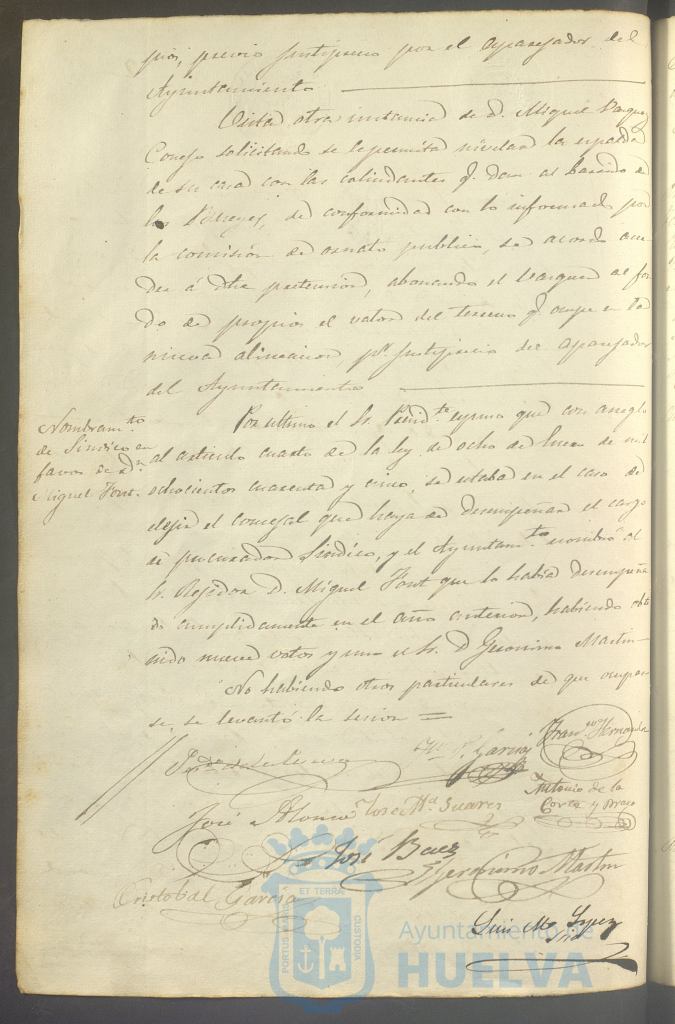 pios, previo justiprecio por el Aparejador del
Ayuntamiento
Vista otra instancia de D. Miguel Vazquez
Conejo solicitando se le permita nivelar la espalda
de su casa con las colindantes q. dan al barrido de
los, de conformidad con lo informado por
la comisión de ornato publico, se acordó acce-
der á dha pretension, abonando el Vazquez al fon
do de propios el valor del terreno q. ocupe en la
nueva alineacion, pr. justiprecio del aparejador
del Ayuntamiento
Nombram.to
de Síndico en
favor de D.n
Miguel Font.
Por ultimo el Sr. Presid.te espuso que con arreglo
al articulo cuarto de la ley de ocho de Enero de mil
ochocientos cuarenta y cinco, se estaba en el caso de
elejir el concejal que haya de desempeñar el cargo
de procurador Sindico, y el Ayuntam.to nombró al
Sr. Rejidor D. Miguel Font que lo habia desempeña
do cumplidamente en el año anterior, habiendo obte
nido nueve votos y uno el Sr. D Geronimo Martin
No habiendo otros particulares de que ocupar-
se, se levantó la sesion =
Garcia
Antonio de la
Corte y Bravo
José Alonso
José M.a Suarez
José Baez
Geronimo Martin
Cristobal Garcia
Luis M. Lopez
Srio
PORTUS MARIS ET TERRAE CUSTODIA
Ayuntamiento de
HUELVA